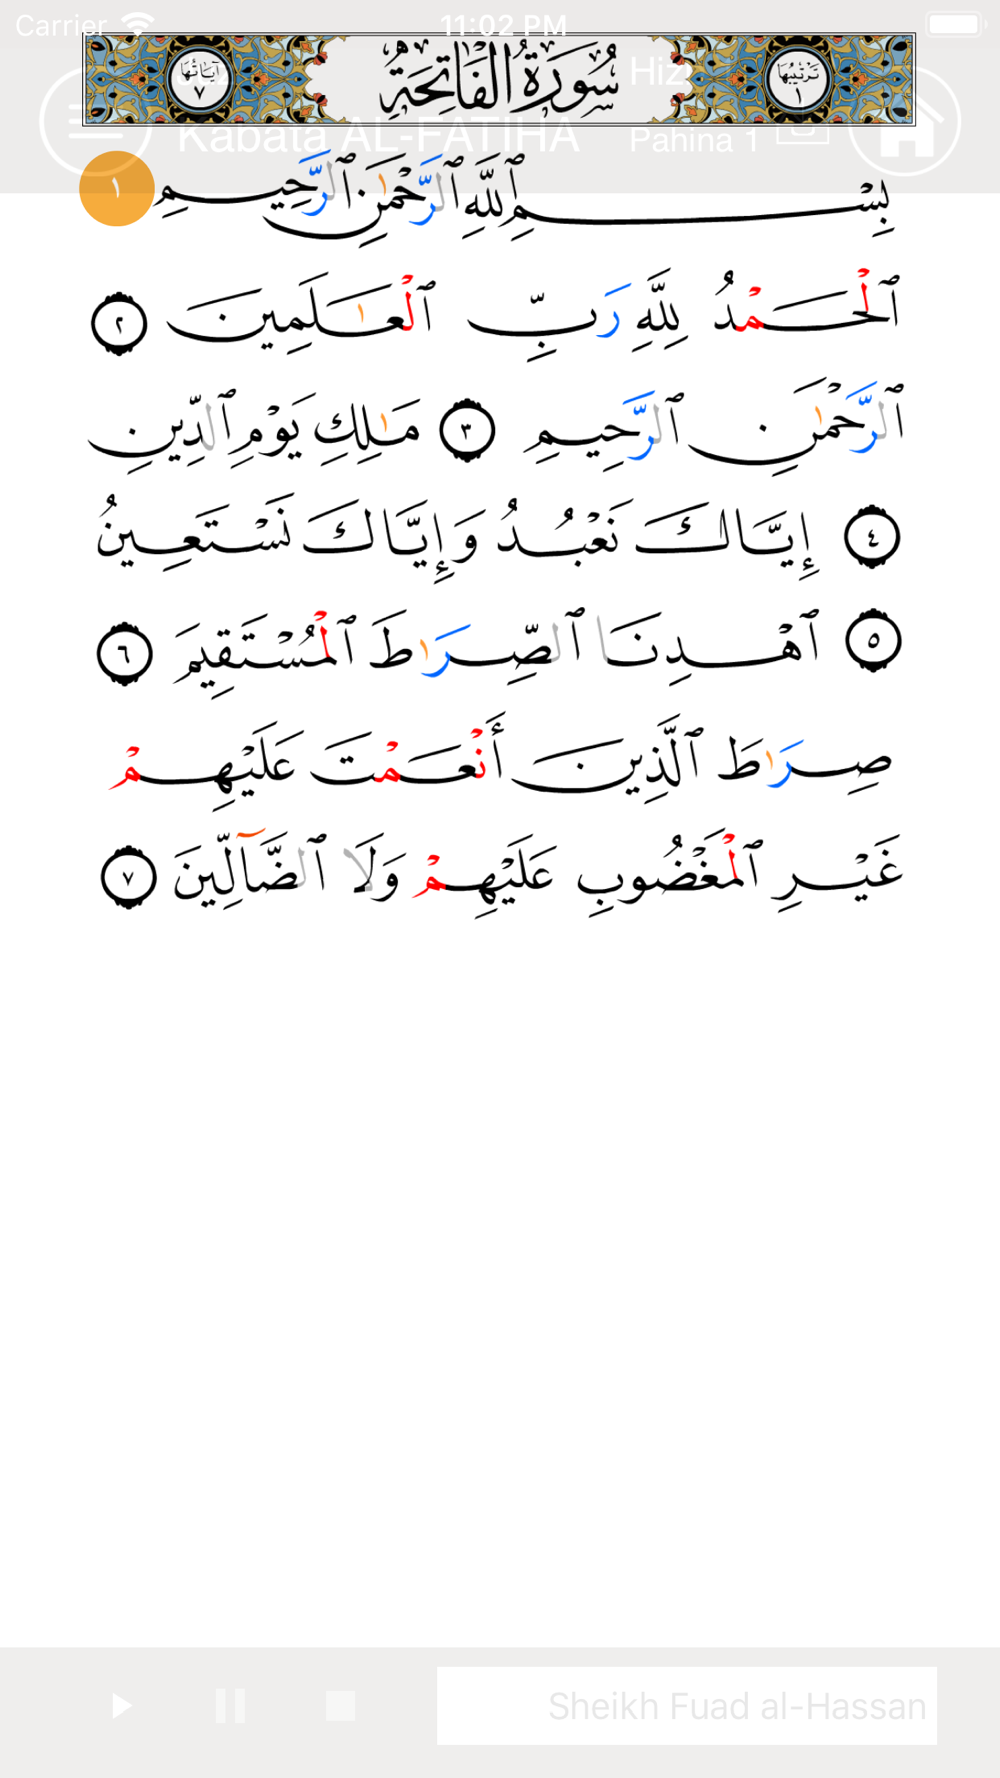 Carrier 11:02 PM
آيَاتُهَا ٧ سُورَةُ الْفَاتِحَةِ تَرْتِيبُهَا ١
Kabata AL-FATIHA Pahina 1
بِسْمِ ٱللَّهِ ٱلرَّحْمَٰنِ ٱلرَّحِيمِ ١
ٱلْحَمْدُ لِلَّهِ رَبِّ ٱلْعَٰلَمِينَ ٢
ٱلرَّحْمَٰنِ ٱلرَّحِيمِ ٣ مَٰلِكِ يَوْمِ ٱلدِّينِ
٤ إِيَّاكَ نَعْبُدُ وَإِيَّاكَ نَسْتَعِينُ
٥ ٱهْدِنَا ٱلصِّرَٰطَ ٱلْمُسْتَقِيمَ ٦
صِرَٰطَ ٱلَّذِينَ أَنْعَمْتَ عَلَيْهِمْ
غَيْرِ ٱلْمَغْضُوبِ عَلَيْهِمْ وَلَا ٱلضَّآلِّينَ ٧
Sheikh Fuad al-Hassan